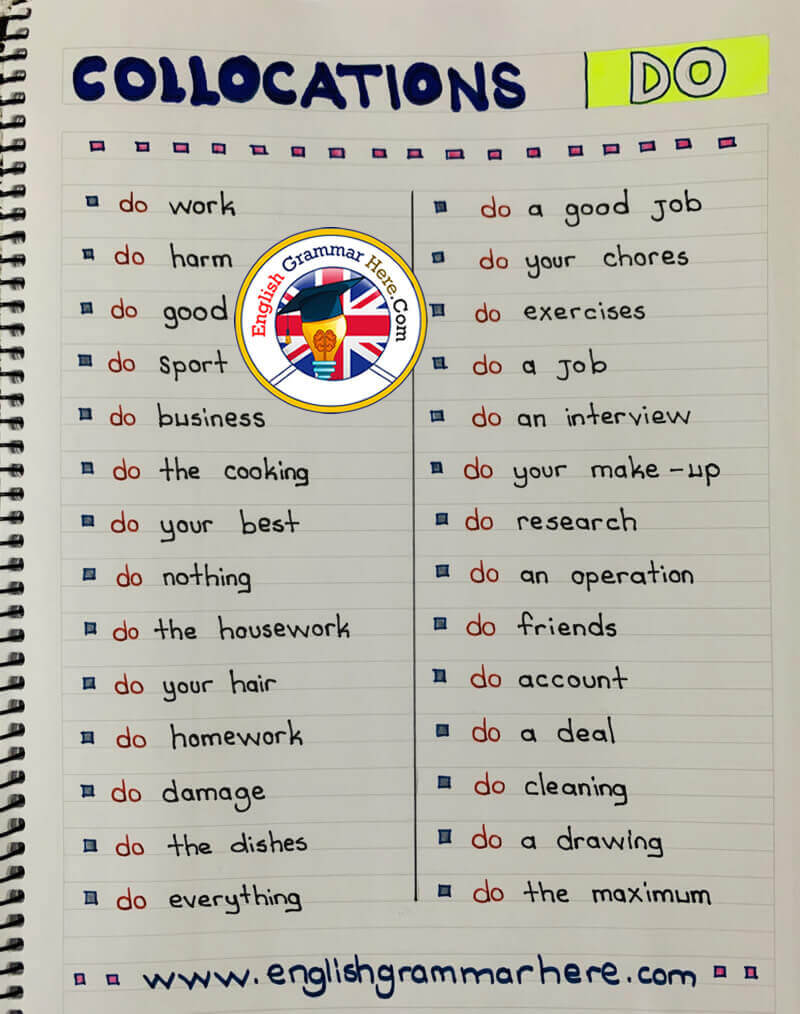 COLLOCATIONS | DO
do work
do harm
do good
do sport
do business
do the cooking
do your best
do nothing
do the housework
do your hair
do homework
do damage
do the dishes
do everything
English Grammar Here.Com
do a good job
do your chores
do exercises
do a job
do an interview
do your make-up
do research
do an operation
do friends
do account
do a deal
do cleaning
do a drawing
do the maximum
www.englishgrammarhere.com